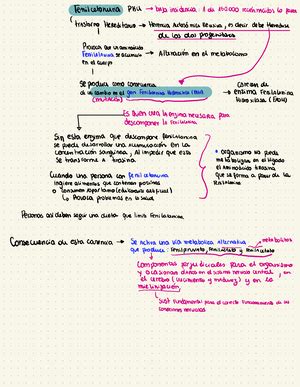 Fenilcetonuria PKU → baja incidencia 1 de 15.000 nacimientos la padece
trastorno Hereditario → Herencia Autosómica Recesiva, es decir debe heredarse
de los dos progenitores
Provoca que un aminoácido
Fenilalanina se acumule → Alteración en el metabolismo
en el cuerpo
Se produce como consecuencia
de un cambio en el gen Fenilalanina Hidroxilasa (PAH)
(mutación)
Carecen de
enzima Fenilalanina
hidroxilasa
Es quien crea la enzima necesaria para
descomponer la Fenilalanina
Sin esta enzima que descompone fenilalanina
se puede desarrollar una acumulación en la
concentración sanguínea, Al impedir que esta
se transforme a tirosina
• organismo no puede
metabolizar en el hígado
el aminoácido tirosina
que se forma a partir de la
Fenilalanina
Cuando una persona con fenilcetonuria
ingiere alimentos que contienen proteínas
o Consumen Aspartamo
↳ Provoca problemas en la salud
Personas así deben seguir una dieta que limite Fenilalanina
Consecuencia de esta carencia → Se activa una vía metabólica Alternativa
que produce: Fenilpiruvato, fenilacetato y fenillactato → metabolitos
Componentes perjudiciales para el organismo
y ocasionan daños en el sistema nervioso central, en
el cerebro (crecimiento y madurez) y en la
mielinización
↳ Fundamental para el correcto Funcionamiento de las
conexiones nerviosas